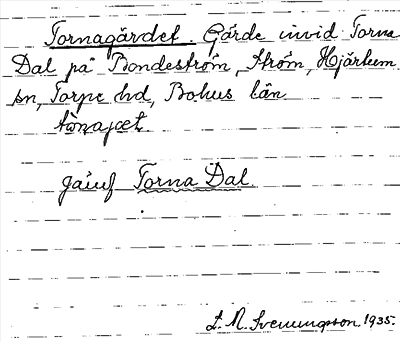 Tornagärdet. Gärde invid Torna
Dal på Bondeström, Ström, Hjärtum
sn, Torpe hd, Bohus län.
tò̱najæt
jämf Torna Dal.
S. M. Svenungsson. 1935.